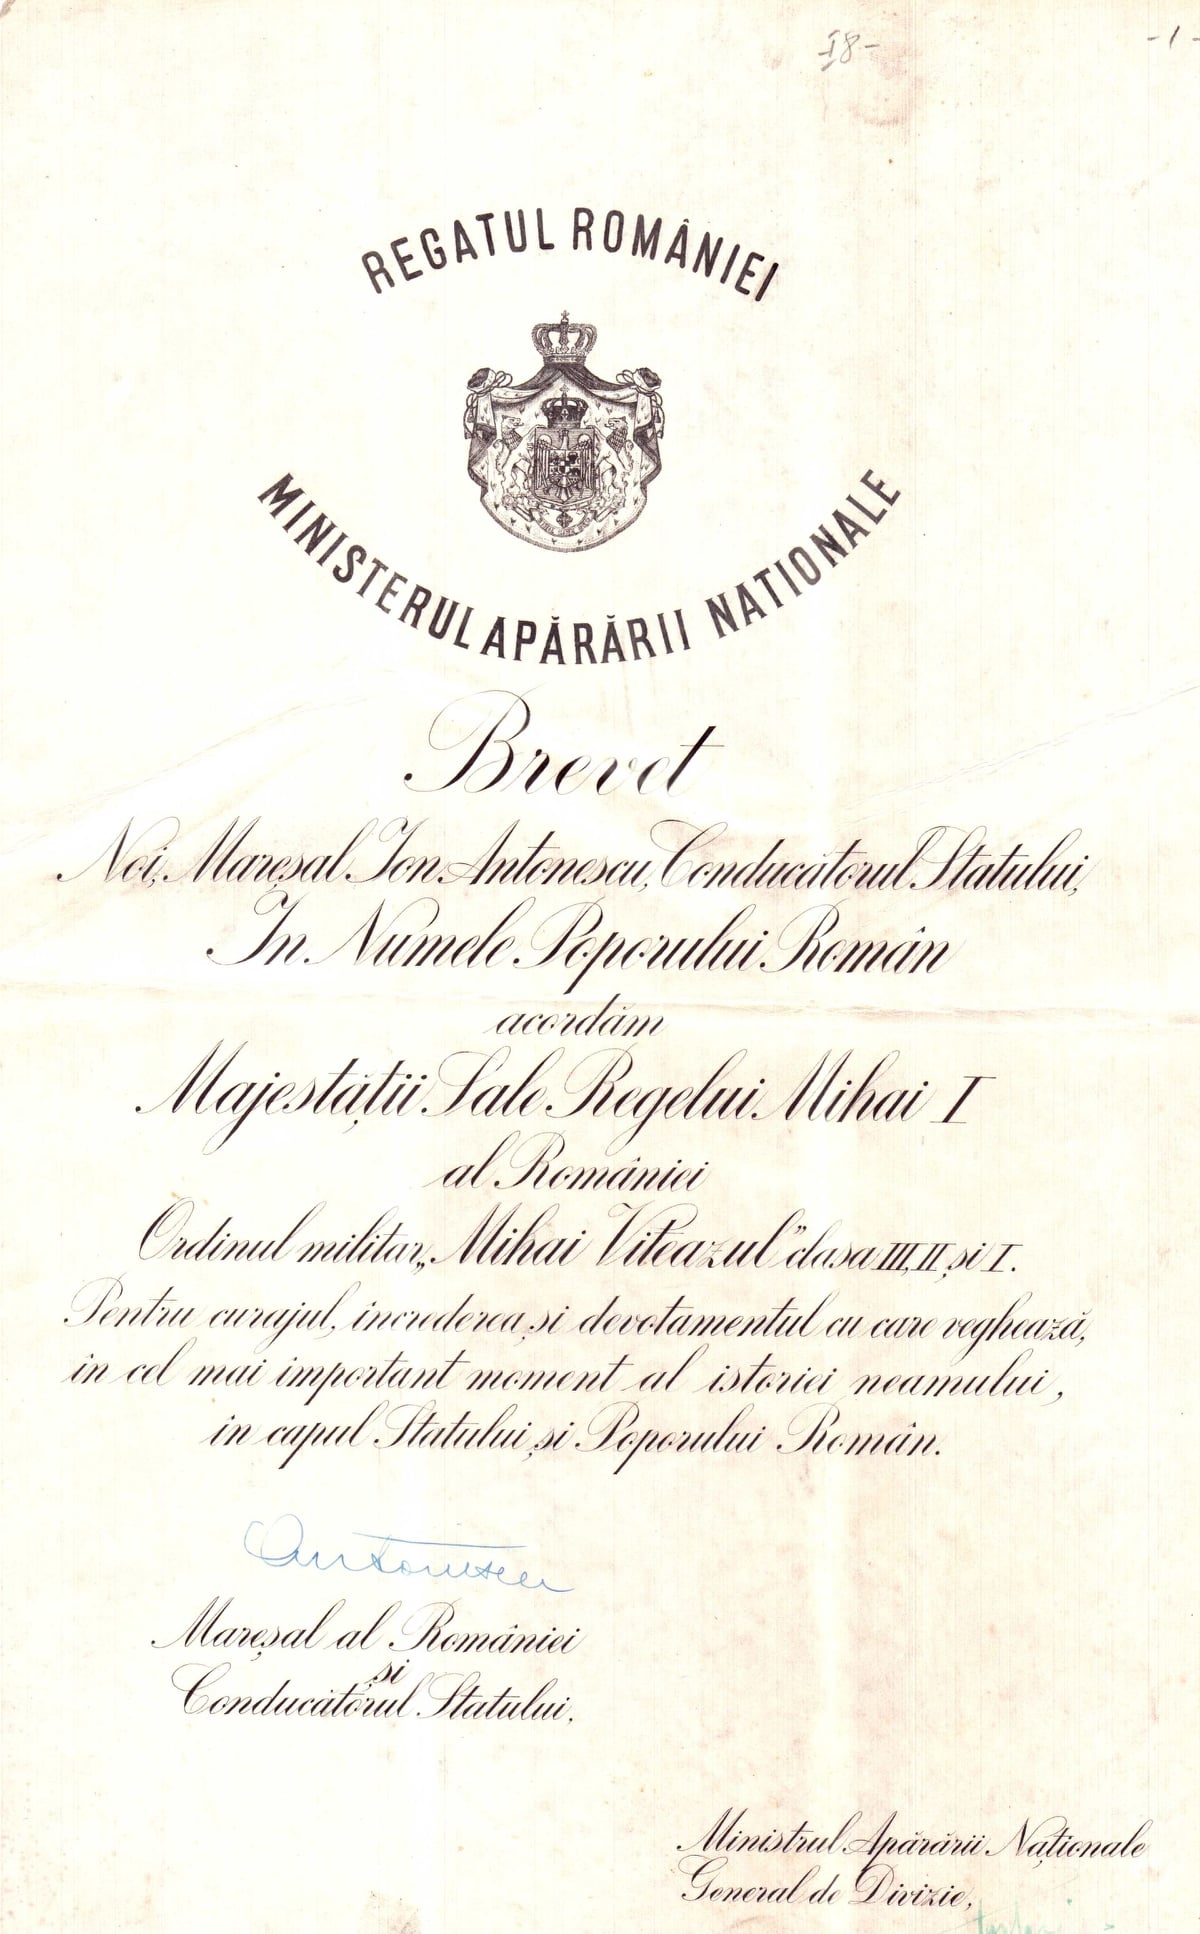 I8-
-1-
REGATUL ROMÂNIEI
MINISTERUL APĂRĂRII NATIONALE
Brevet
Noi, Mareșal Ion Antonescu, Conducătorul Statului,
In Numele Poporului Român
acordăm
Majestății Sale Regelui Mihai I
al României
Ordinul militar „Mihai Viteazul" clasa III, II și I.
Pentru curajul, increderea și devotamentul cu care veghează,
în cel mai important moment al istoriei neamului,
în capul Statului și Poporului Român.
Antonescu
Mareșal al României
și
Conducătorul Statului.
Ministrul Apărării Naționale
General de Divizie,